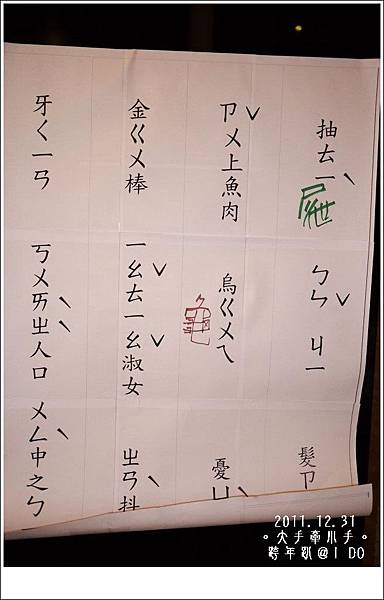 抽ㄊㄧˋ
屜
ㄅㄣˇ ㄐㄧ
髮ㄗ
ㄗㄨˇ上魚肉
烏ㄍㄨㄟ
龜
憂ㄩˋ
金ㄍㄨ棒
ㄧㄠˇㄊㄧㄠˇ淑女
ㄓㄢˋ抖
牙ㄑㄧㄢ
ㄎㄨㄞˋㄓˋ人口
ㄨㄥˋ中之ㄅ
2011.12.31
。大手牽小手。
跨年趴@I DO